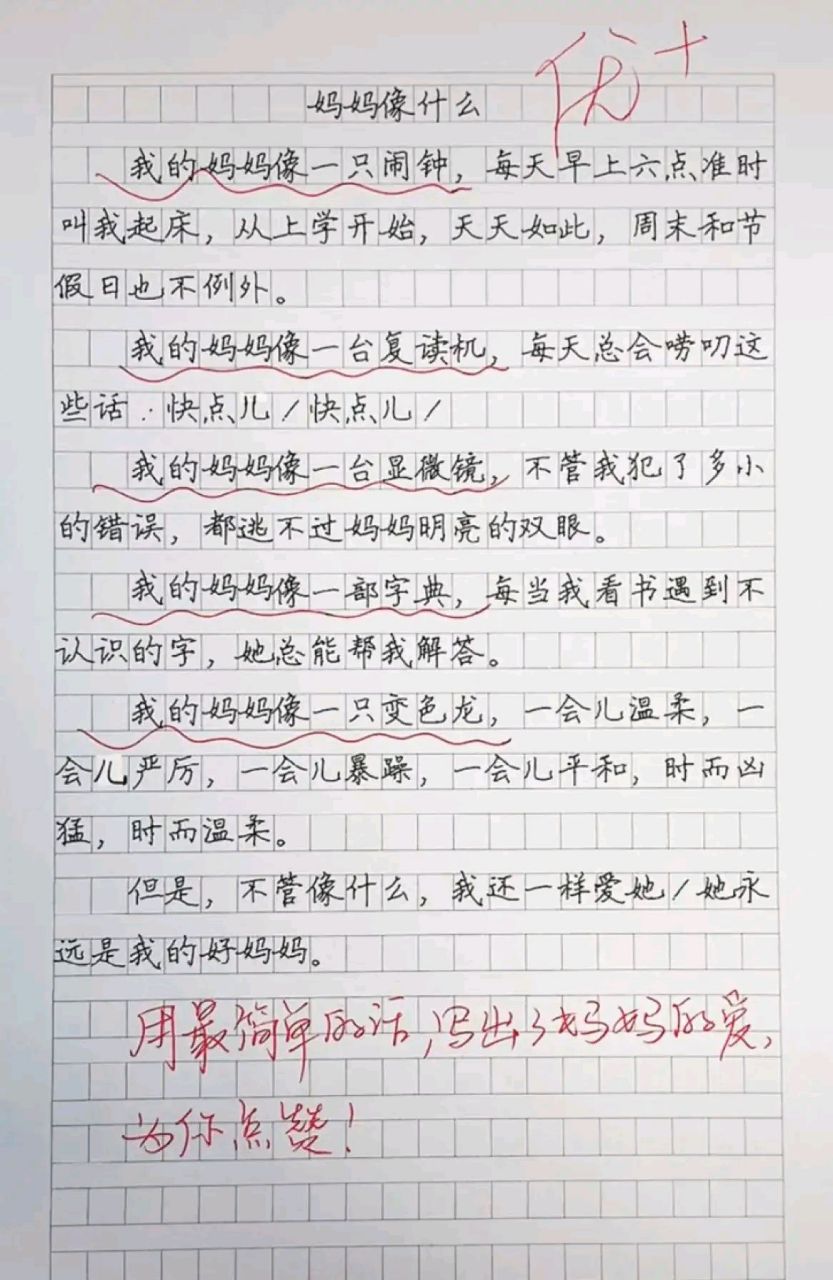 优+
妈妈像什么
我的妈妈像一只闹钟，每天早上六点准时
叫我起床，从上学开始，天天如此，周末和节
假日也不例外。
我的妈妈像一台复读机，每天总会唠叨这
些话：快点儿！快点儿！
我的妈妈像一台显微镜，不管我犯了多小
的错误，都逃不过妈妈明亮的双眼。
我的妈妈像一部字典，每当我看书遇到不
认识的字，她总能帮我解答。
我的妈妈像一只变色龙，一会儿温柔，一
会儿严厉，一会儿暴躁，一会儿平和，时而凶
猛，时而温柔。
但是，不管像什么，我还一样爱她！她永
远是我的好妈妈。
用最简单的话，写出了妈妈的爱，
为你点赞！